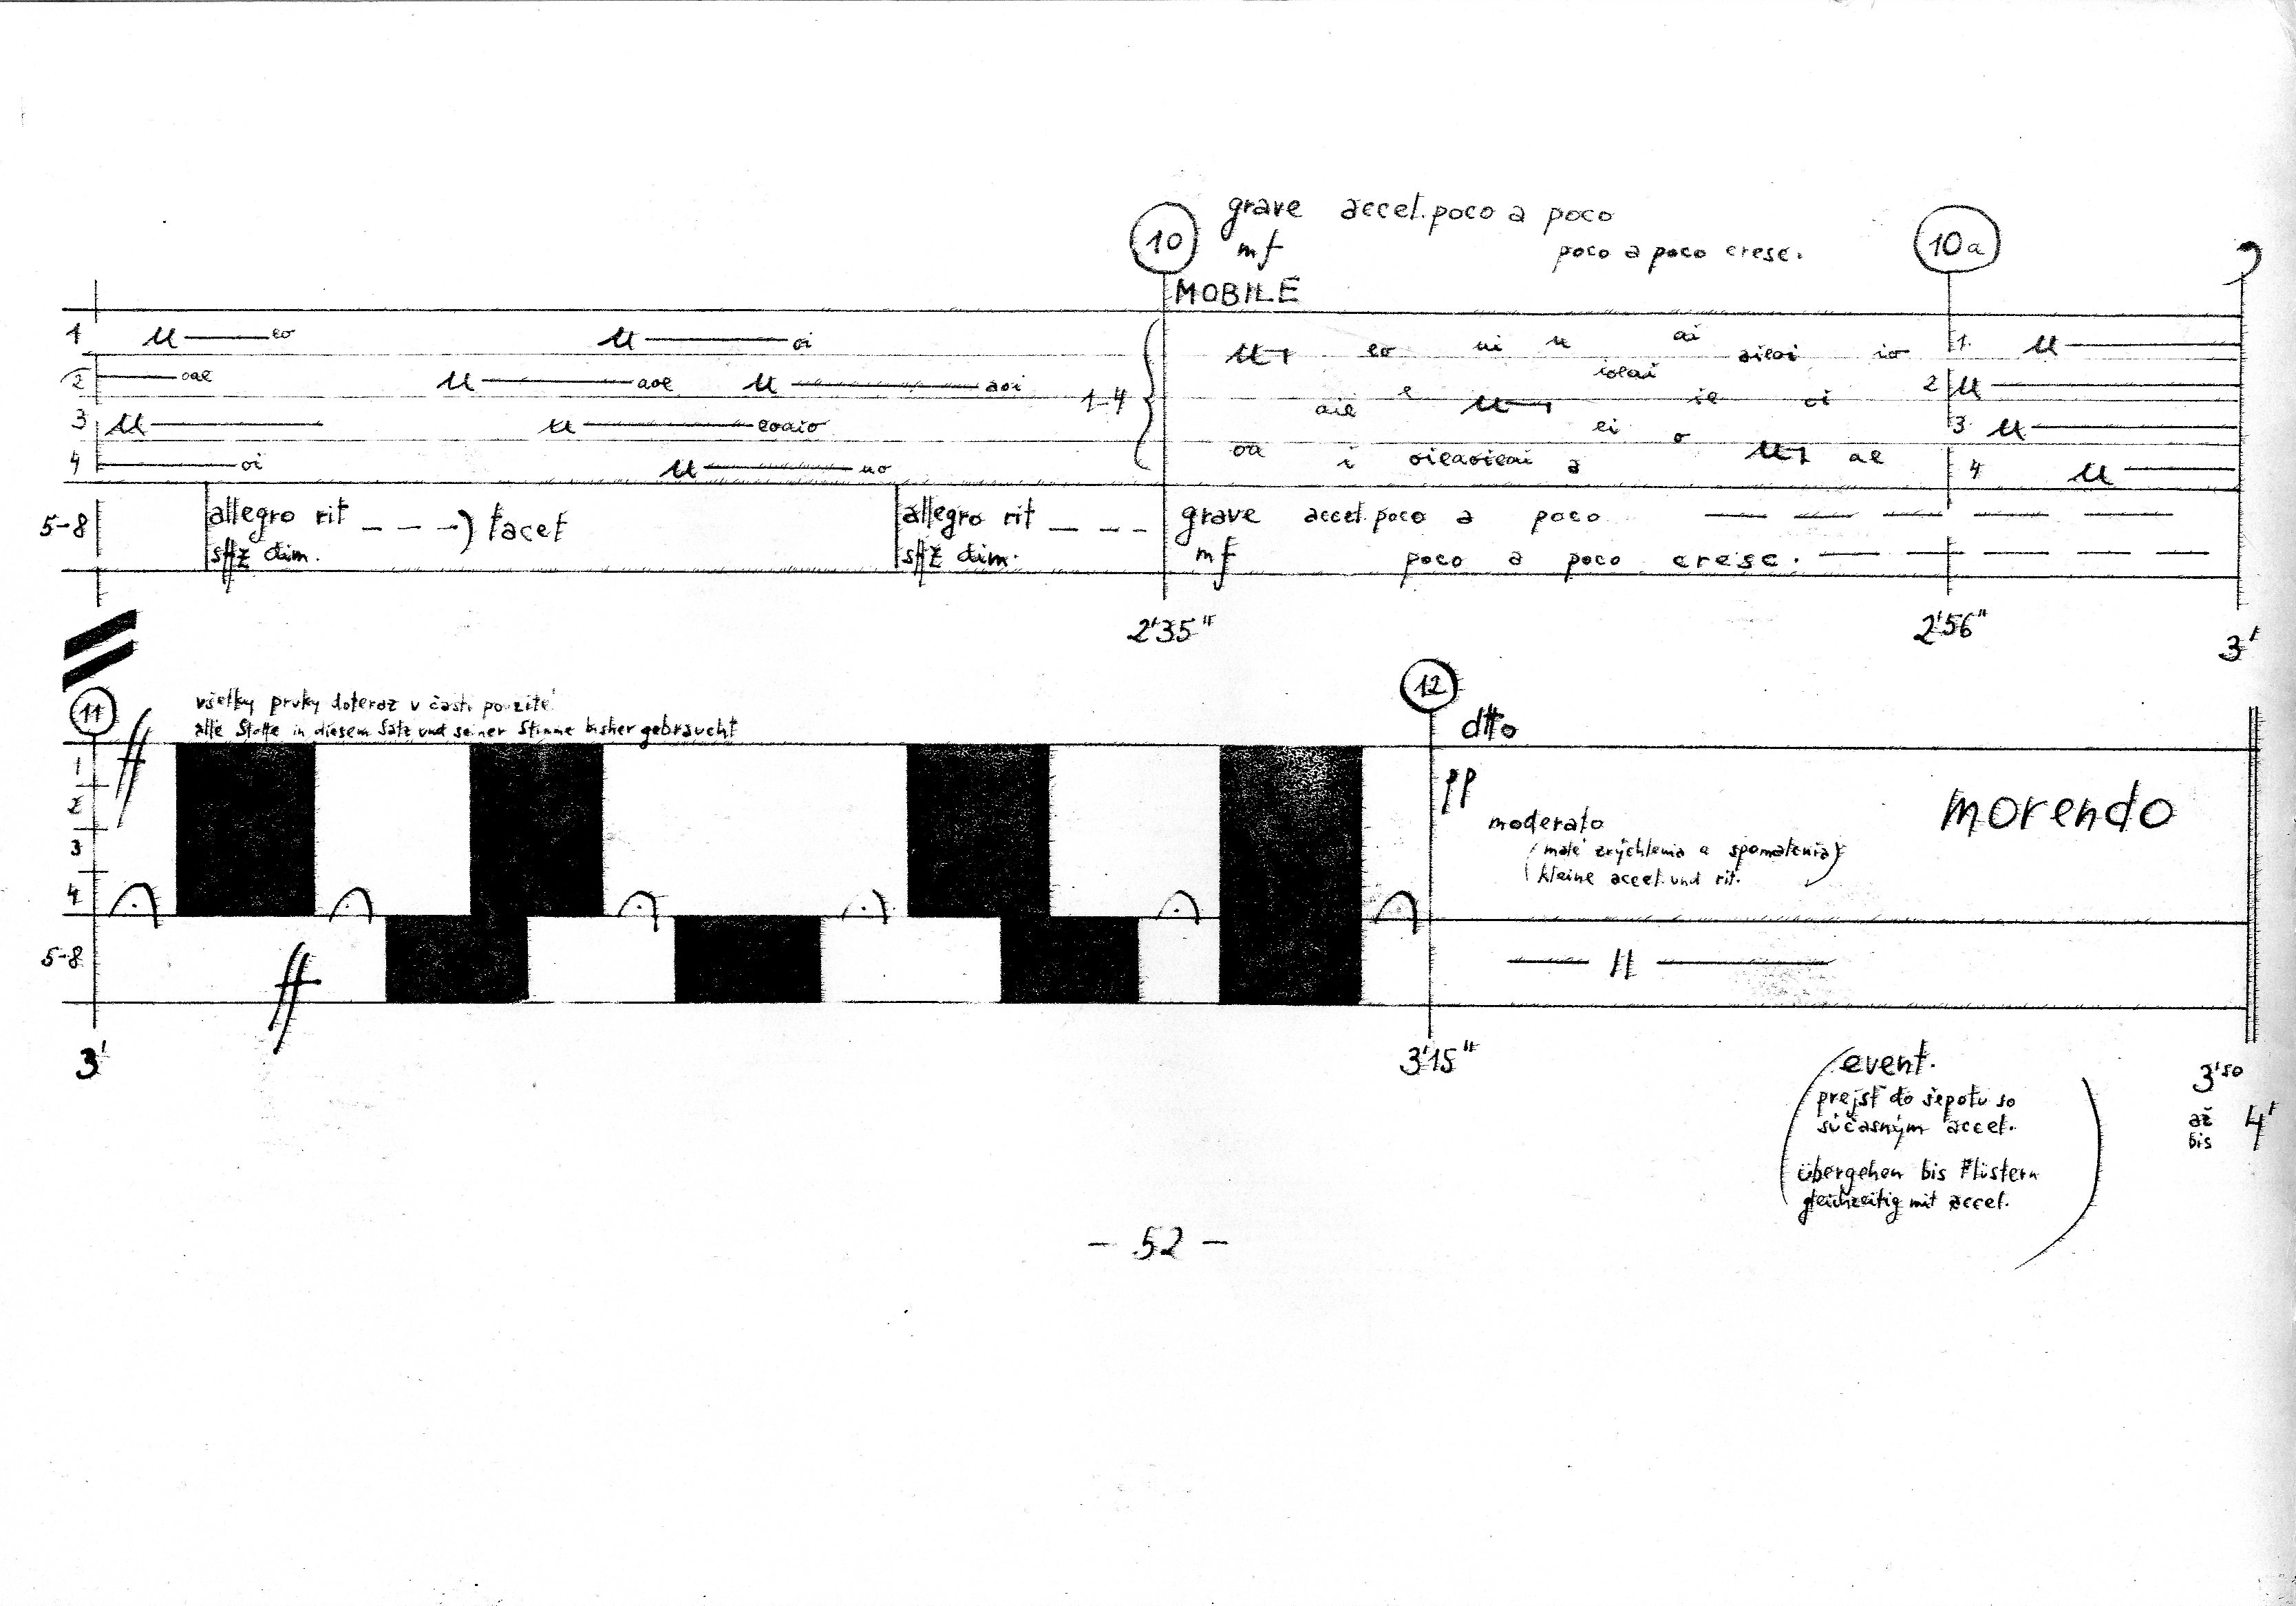 10 grave accel. poco a poco 10a
mf poco a poco cresc.
MOBILE
1 u eo u oi
2 oae u aoe u aoi
3 u u eoaio
4 oi u uo
1-4
u eo ui u ai aieoi io
ioeai
aie e u ie oi
ei
oa i oieaoieai a o u ae
1. u
2 u
3 u
4 u
5-8 allegro rit ) tacet allegro rit grave accel. poco a poco
sffz dim. sffz dim. mf poco a poco cresc.
2'35" 2'56" 3'
11 všetky prvky doteraz v časti použité 12
alle Stoffe in diesem Satz und seiner Stimme bisher gebraucht
ff dtto
1
2 pp morendo
moderato
3 (malé zrýchlenia a spomalenia)
4 kleine accel. und rit.
5-8 ff "
3' 3'15"
(event.
prejsť do šepotu so
súčasným accel.
übergehen bis Flüstern
gleichzeitig mit accel.)
3'50
až
bis 4'
- 52 -